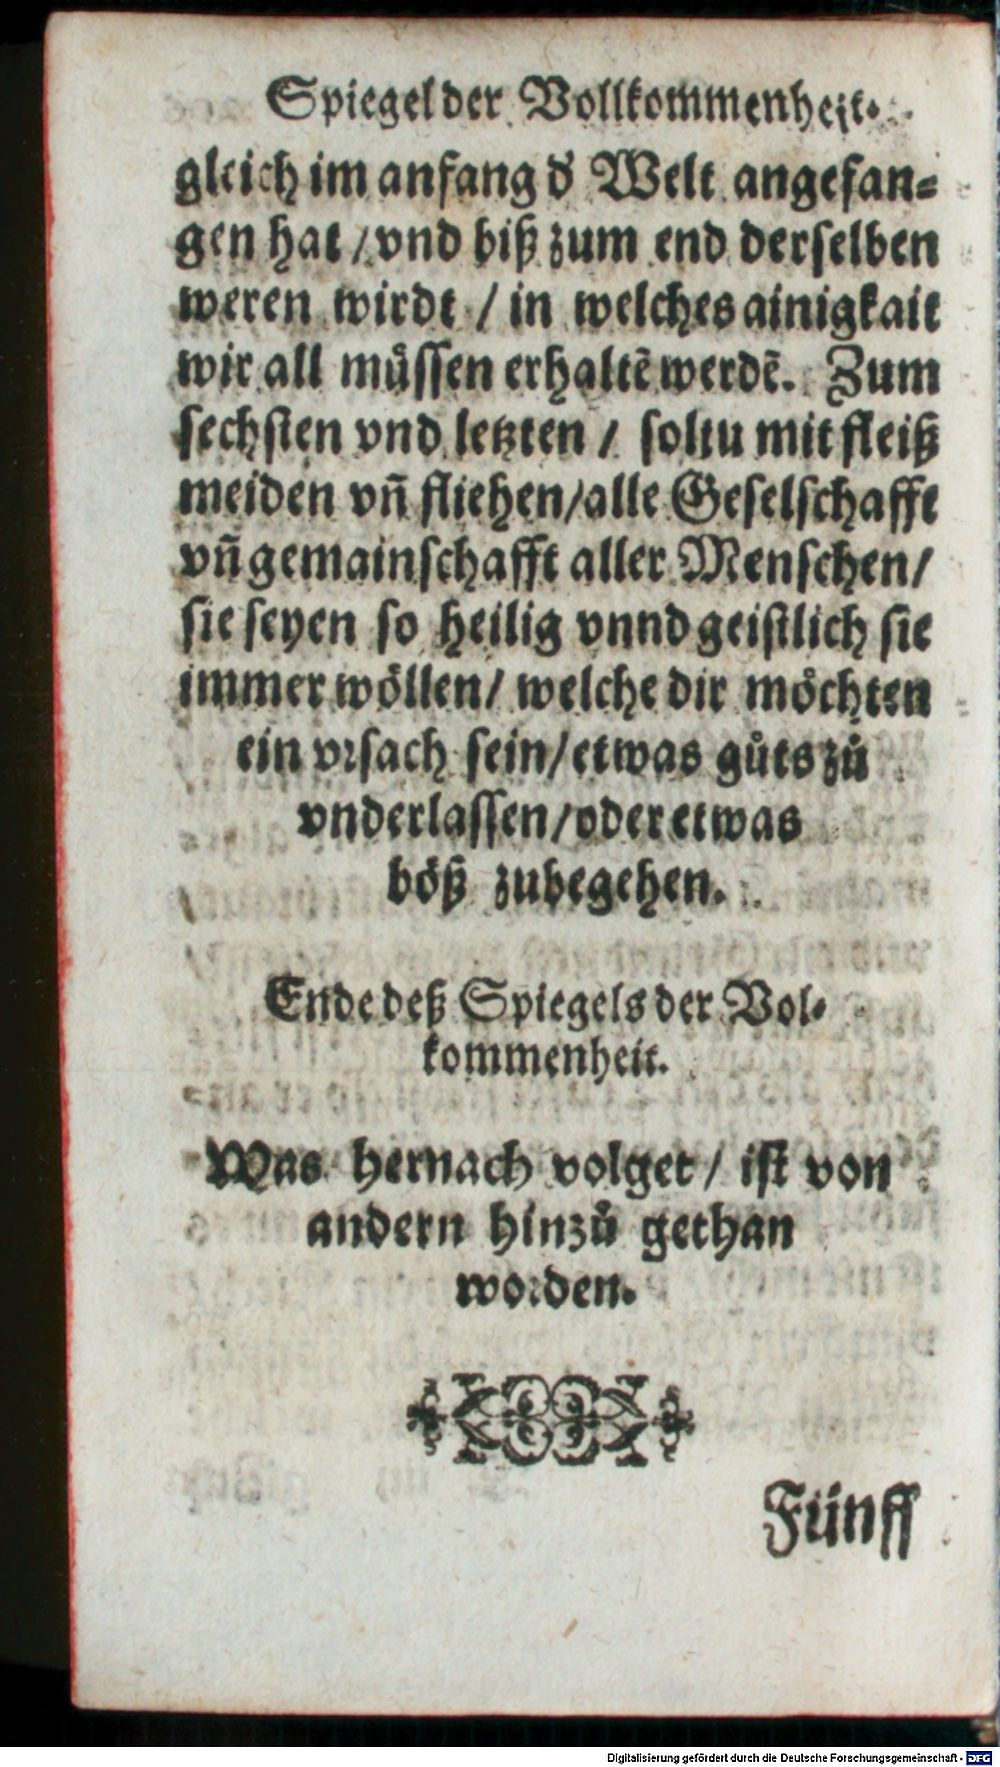 Spiegel der Vollkommenheit.
gleich im anfang d̕ Welt angefan⸗
gen hat / vnd biß zum end derselben
weren wirdt / in welches ainigkait
wir all müssen erhaltē werdē. Zum
sechsten vnd letzten / soltu mit fleiß
meiden vñ fliehen/alle Geselschafft
vñ gemainschafft aller Menschen/
sie seyen so heilig vnnd geistlich sie
immer wöllen/ welche dir möchten
ein vrsach sein/etwas gůts zů
vnderlassen/oder etwas
böß zubegehen.
Ende deß Spiegels der Vol⸗
kommenheit.
Was hernach volget / ist von
andern hinzů gethan
worden.
Fünff
Digitalisierung gefördert durch die Deutsche Forschungsgemeinschaft - DFG